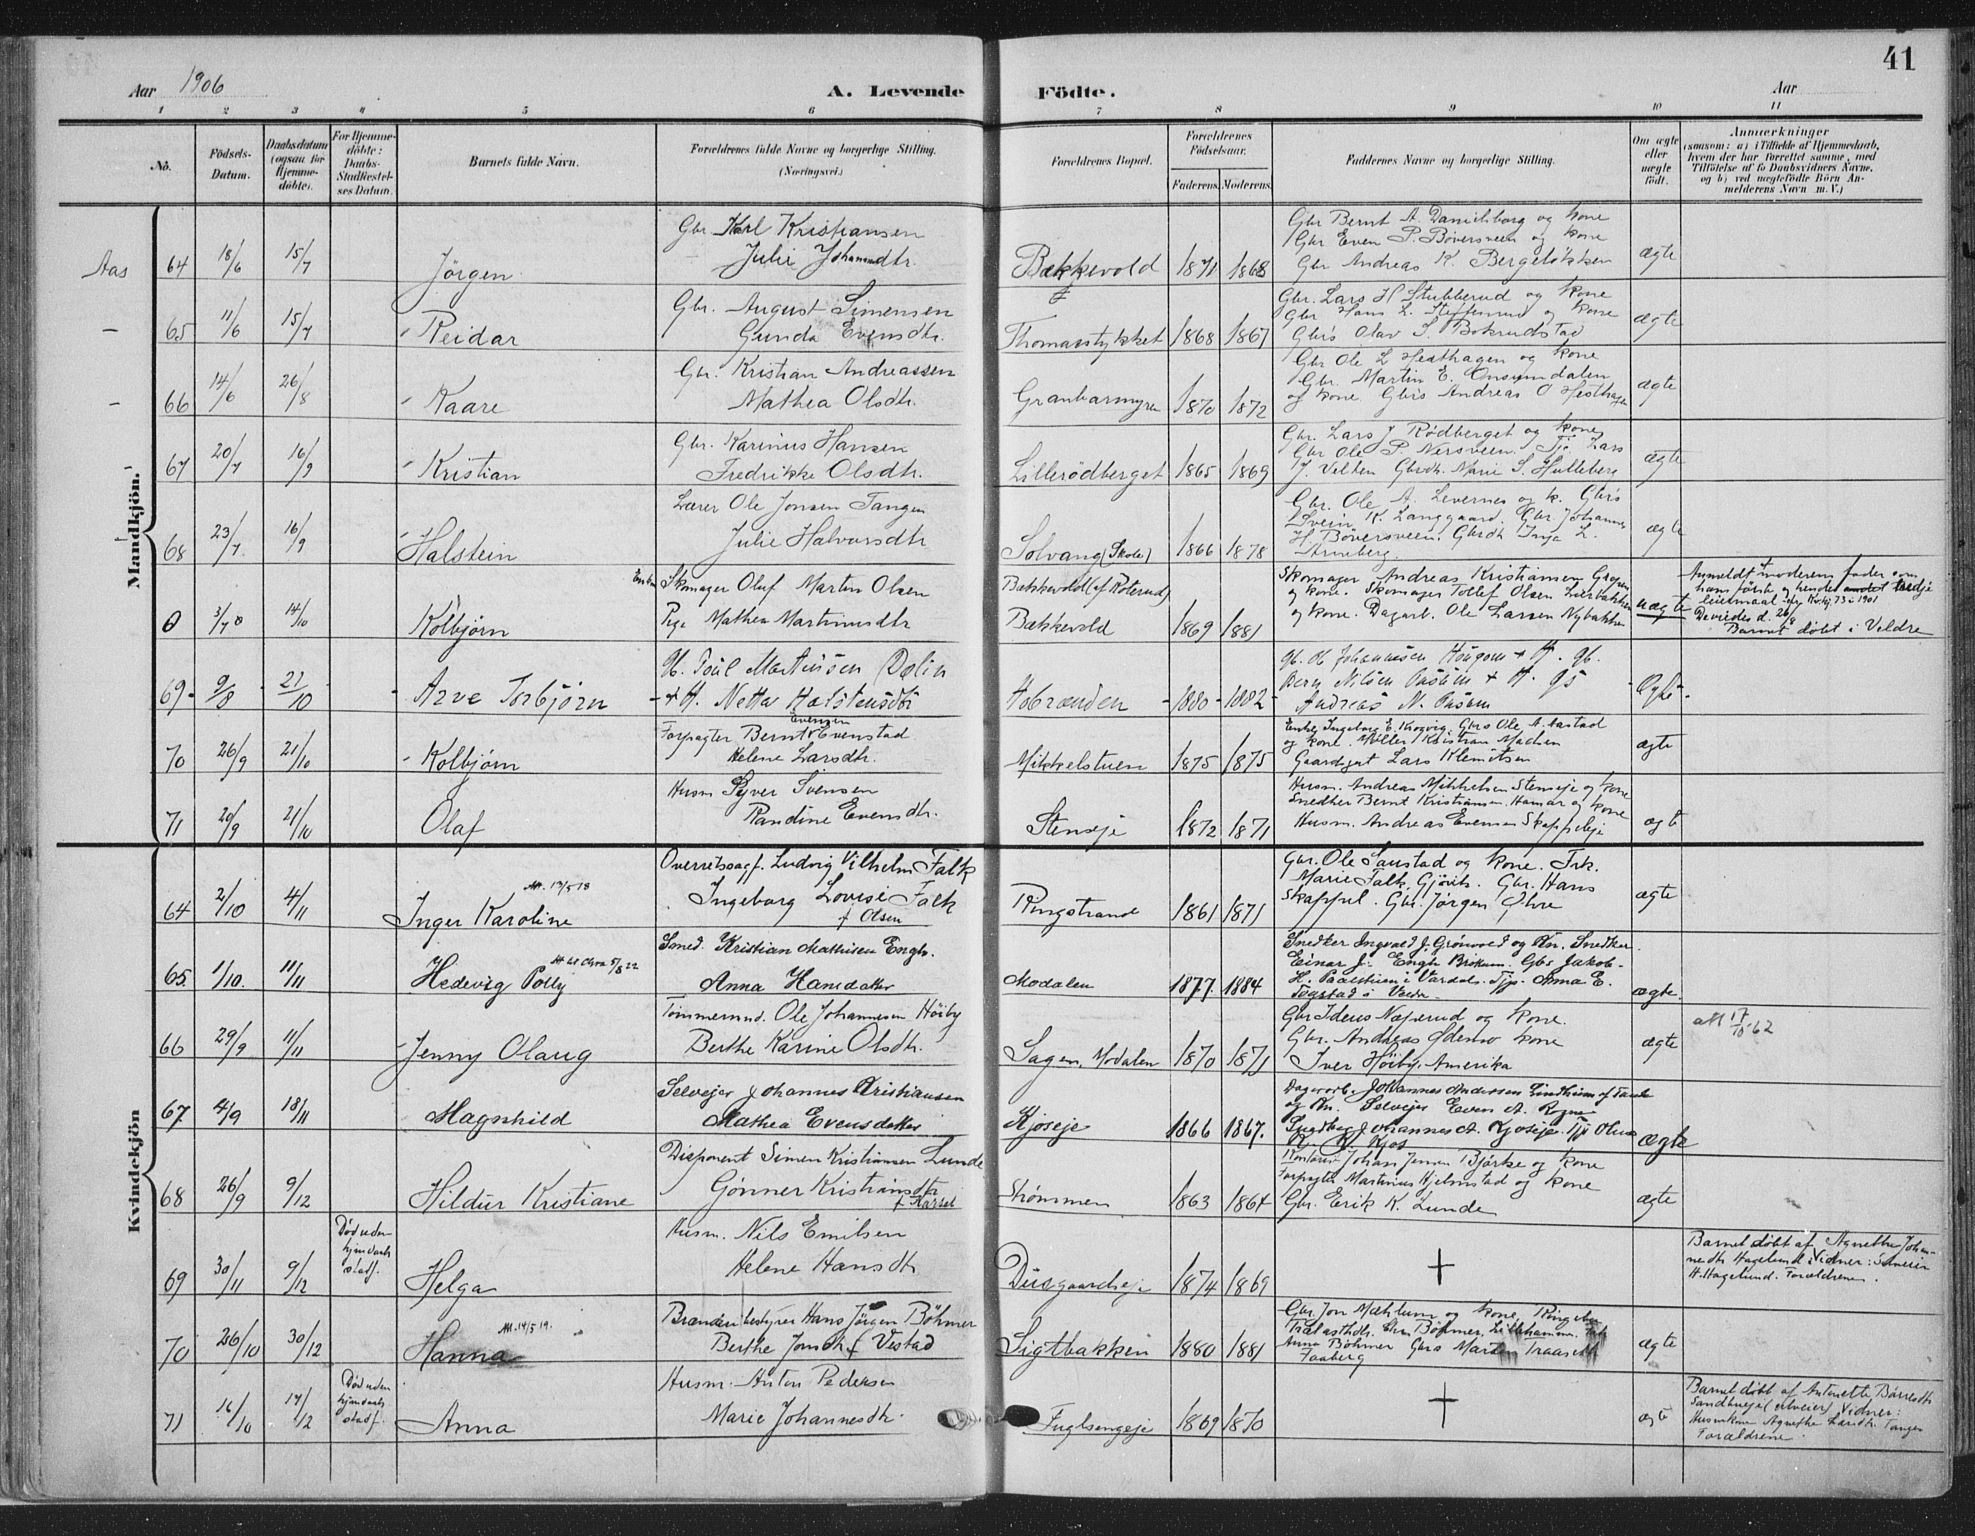 41
Aar 1906
A. Levende Födte.
Aar
1 2 3 4 5 6 7 8 9 10 11
No.
Födsels-Datum.
Daabsdatum (ogsaa for Hjemme-döbte).
For Hjemme-döbte: Daabs-Stadfæstel-ses Datum.
Barnets fulde Navn.
Forældrenes fulde Navne og borgerlige Stilling. (Næringsvei.)
Forældrenes Bopæl.
Forældrenes Födselsaar.
Faderens. Moderens.
Faddernes Navne og borgerlige Stilling.
Om ægte eller uægte födt.
Anmærkninger
(saasom: a) i Tilfælde af Hjemmedaab,
hvem der har forrettet samme, med
Tilföielse af to Daabsvidners Navne,
og b) ved uægtefödte Börn An-
melderens Navn m. V.)
Mandkjön.
Aas 64 18/6 15/7 Jörgen
Gbr. Karl Kristiansen
Julie Johannsdtr.
Bækkevold 1871 1868
Gbr Bernt A. Danielsborg og kone
Gbr Even P.Böversveen og kone
Gbr Andreas K. Bergelökken
ægte
— 65 11/6 15/7 Reidar
Gbr. August Simensen
Gunda Evensdtr.
Thomasstykket 1868 1867
Gbr. Lars H Stubberud og kone
Gbr Hans L. Steffensrud og kone
Gbrs Olav S. Bokrudstad
ægte
— 66 14/6 26/8 Kaare
Gbr. Kristian Andreassen
Mathea Olsdtr.
Granbarmyren 1870 1872
Gbr Ole L Hesthagen og kone
Gbr. Martin E. Onsumdalen
og kone Gbrs Andreas O Hesthagen
ægte
67 20/7 16/9 Kristian
Gbr. Karinus Hansen
Fredrikke Olsdtr.
Lillerödberget 1865 1869
Gbr. Lars J Rødberget og kone
Gbr Ole P. Nersveen. Tj. Lars
J. Velten Gbrdtr. Marie S. Hulleberg
ægte
68 23/7 16/9 Halstein
Lærer Ole Jonsen Tangen
Julie Halvorsdtr
Solvang (Skole) 1866 1878
Gbr. Ole A. Levernes og k. Gbrs
Svein K. Langgaard. Gbr Johannes
H. Böversveen. Gbrdtr Inga L.
Arneberg.
ægte
0 3/7 14/10 Kolbjørn
Skomager Oluf Martin Olsen
Pige Mathea Martinusdtr
Bækkevold (af Roterud)
Bækkevold 1869 1881
Skomager Andreas Kristiansen
og kone. Skomager Tollef Olsen Lierbakken
og kone. Dagarb. Ole Larsen Nybakken
uægte
Anmeldt moderens fader som
hans første og hendes tredje
leiermaal
Barnet döbt i Veldre
69 9/8 21/10 Arve Torbjörn
Gb. Paul Martinsen Dolin
+ H. Netta Halstensdtr
Hobrænden 1880 1882
Andreas N. Aasum
Ægte
70 26/9 21/10 Kolbjörn
Forpagter Bernt Evensen Evenstad
Helene Larsdtr.
Mikkelstuen 1875 1875
og kone. Møller Kristian Madsen
Gaardgut Lars Klemetsen
ægte
71 20/9 21/10 Olaf
Husm Syver Svensen
Randine Evensdtr.
Stenseje 1872 1871
Husm. Andreas Mikkelsen Stenseje og kone
Snedker Bernt Kristiansen. Hamar og kone
Husm. Andreas Evensen Skappeleje
ægte
Kvindekjön
64 2/10 4/11 Inger Karoline
Overretssagf. Ludvig Vilhelm Falk
Ingeborg Lovise Falk
f Olsen
Ringstrand 1861 1871
Gbr. Ole Saustad og kone. Frk.
Marie Falk, Gjövik. Gbr. Hans
Skappel. Gbr. Jörgen Öhre
ægte
65 1/10 11/11 Hedevig Polly
Smed. Kristian Mathisen Engh.
Anna Hansdatter
Modalen 1877 1884
Snedker Ingvald J. Grönvold og Kn. Snedker
Einar J. Engh Brökum. Gbs Jakob
H. i Vardal. Tjp. Anna E.
Sogstad i Veldre
ægte.
66 29/9 11/11 Jenny Olaug
Tömmermd. Ole Johannesen Höiby
Berthe Karine Olsdtr.
Sagen, Modalen 1870 1871
Gbr Iderus Næperud og kone.
Gbr. Andreas Ødemo kone
Iver Höiby. Amerika
ægte
att 17/10-62
67 4/9 18/11 Magnhild
Selvejer Johannes Kristiansen
Mathea Evensdatter
Kjoseje 1866 1867.
Dagarb. Johannes Andersen Lindheim af
og Kn. Selvejer Even A. Rogne
Johannes A. Kjoseje.
ægte
68 26/9 9/12 Hildur Kristiane
Disponent Simen Kristiansen Lunde
Gönner Kristiansdtr
f Karset
Strömmen 1863 1864
Johan Jensen Björke og kone
Forpagter Martinius Hjelmstad og kone
Gbr. Erik K. Lunde
ægte
69 30/11 9/12 Död uden hjemdaabs stadf. Helga
Husm. Nils Emilsen
Helene Hansdtr
Diesgaardseje 1874 1869
+
Barnet döbt af Agnethe Johan-
nesdtr Hagelund. Vidner:
H. Hagelund. Forældrene.
70 26/10 30/12 Hanna
Att. 14/5 19.
Brænderibestyrer Hans Jörgen Böhmer
Berthe Jonsdtr. f Vestad
Sigtbakken 1880 1881
Gbr Jon Mæhlum og kone, Ringsaker
Anna Böhmer Gbrs Martin Traaseth
Faaberg
ægte
71 16/10 17/12 Död uden hjemdaabs stadf. Anna
Husm. Anton Pedersen
Marie Johannesdtr.
Fuglsengeje 1869 1870
+
ægte
Barnet döbt af Antonette Börresdtr
Sandhuseje Vidner:
Husmkone Agnethe Larsdtr. Tangen
Forældrene.